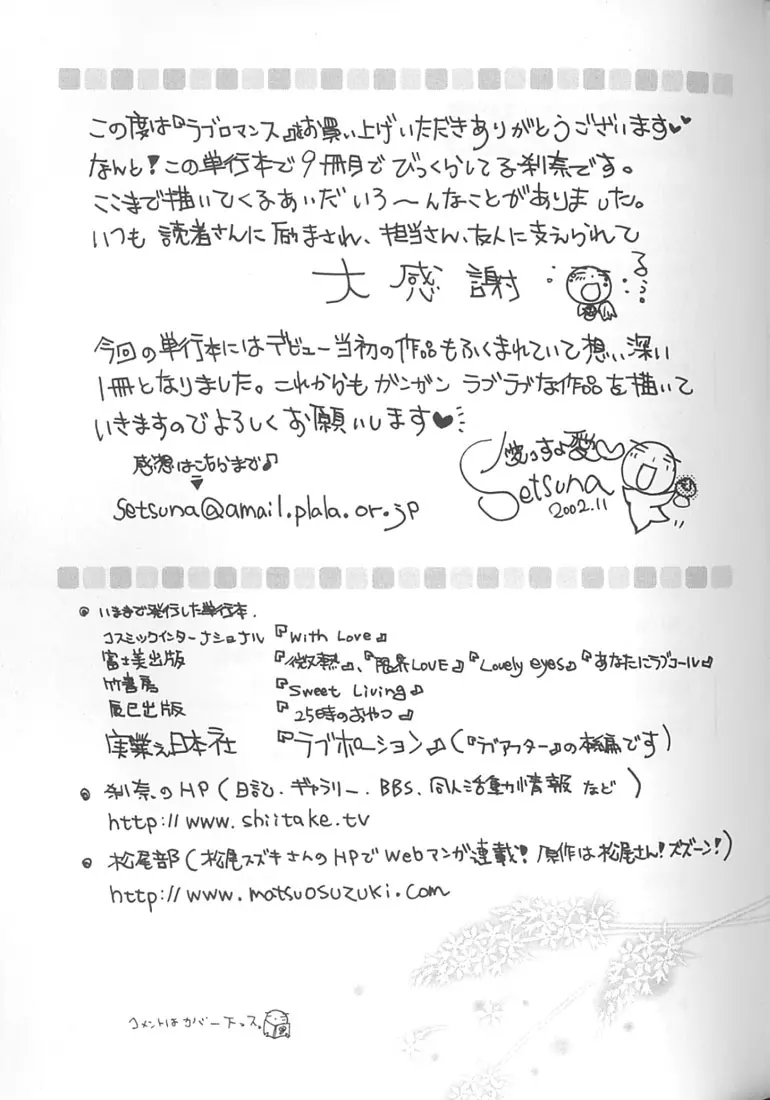 この度は『ラブロマンス』をお買い上げいただきありがとうございます♥♥
なんと!この単行本で9冊目でびっくらしてる刹奈です。
ここまで描いてくるあいだいろ〜んなことがありました。
いつも 読者さんに励まされ、担当さん、友人に支えられて
大感謝
る
今回の単行本にはデビュー当初の作品もふくまれていて想い深い
1冊となりました。これからもガンガン ラブラブな作品を描いて
いきますのでよろしくお願いします♥
感想はこちらまで♪
▼
setsuna@amail.plala.or.jp
愛っすよ愛〜
Setsuna
2002.11
●いままで発行した単行本.
コスミックインターナショナル 『With Love』
富士美出版 『微熱』、『限界LOVE』『Lovely eyes』『あなたにラブコール』
竹書房 『Sweet Living』
辰巳出版 『25時のおやつ』
実業之日本社 『ラブポーション』(『ラブアフター』の本編です)
●刹奈のHP(日記.ギャラリー.BBS、同人活動情報 など)
http://www.shiitake.tv
●松尾部(松尾スズキさんのHPでWebマンガ連載!原作は松尾さん!ズズーン!)
http://www.matsuosuzuki.com
コメントはカバー下っス。